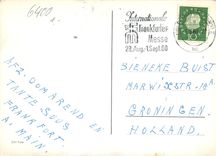 6400
Internationale
Frankfurter
Messe
28. Aug.-1. Sept. 60
AFZ. DOMARENO EN
TANTE SUUS
FRANKFORT
A. MAIN.
SIENEKE BUIST
MARWIXSTR-18A
GRONINGEN
HOLLAND.